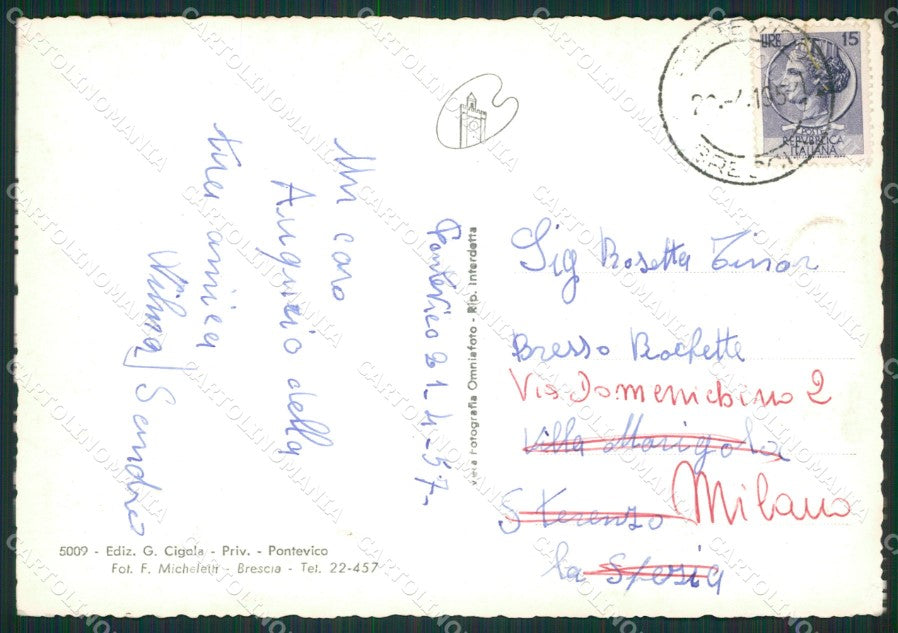 Un caro
Augurio della
tua amica
Vilma Sandro
Pontevico 21-4-57-
5009 - Ediz. G. Cigala - Priv. - Pontevico
Fot. F. Micheletti - Brescia - Tel. 22-457
Vera Fotografia Omniafoto - Rip. Interdetta
LIRE 15
POSTE
REPUBBLICA
ITALIANA
BRESCIA
Sig Rosetta
Presso Rochette
Via Domenichino 2
Villa Marigola
S Terenzo Milano
la Spezia
CARTOLINOMANIA